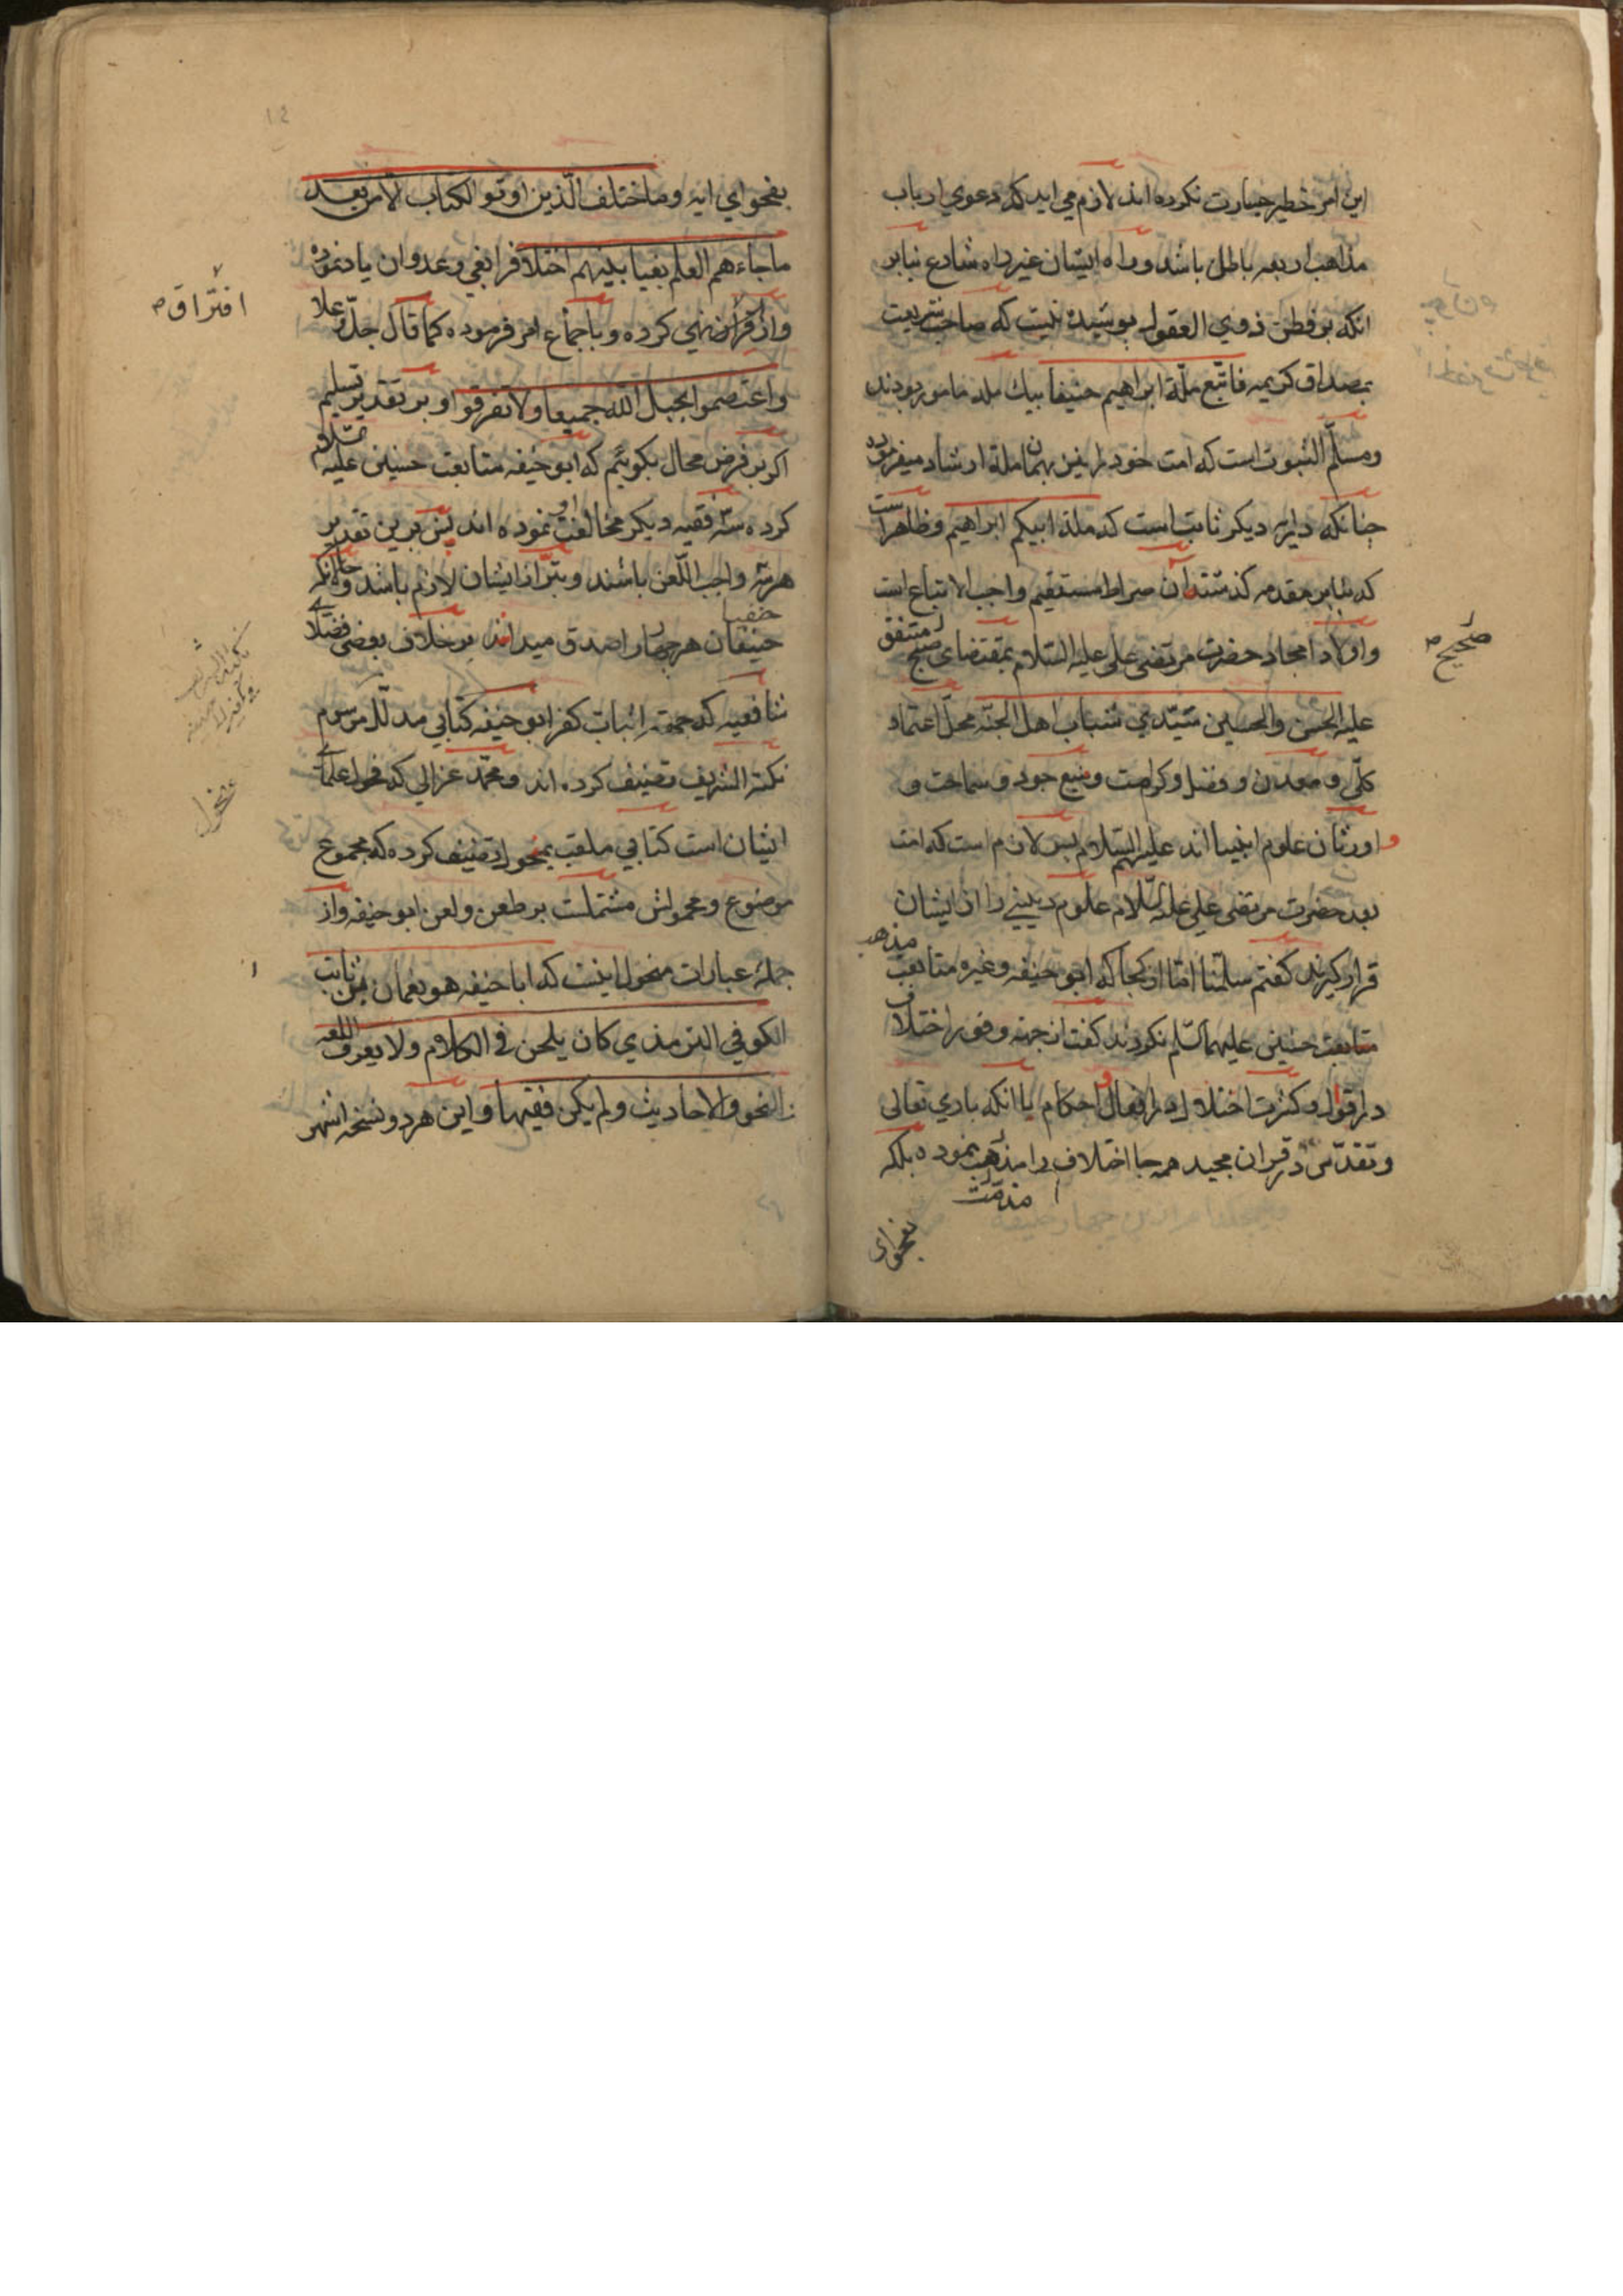 این امر خطیر جسارت نکرده اند لازم می اید که دعوی ارباب
مذاهب اربعه باطل باشد و راه ایشان غیر راه شارع بنابر
انکه بر فطن ذوی العقول پوشیده نیست که صاحب شریعت
بمصداق کریمه فاتبع ملة ابراهیم حنیفا بیك مله مامور بودند
ومسلّم الثبوت است که امت خود را نیز بهمان ملة ارشاد میفرموده
چنانکه در ایه دیکر ثابت است که ملة ابیکم ابراهیم وظاهر است
که بنابر مقدمه کذشته ان صراط مستقیم واجب الاتباع است
واولاد امجاد حضرت مرتضی علی علیه السّلام بمقتضای متفق
صحیح
علیه الحسن والحسین سیّدی شباب اهل الجنّه محلّ اعتماد
کلّی و معدن و فضل وکرامت ومنبع جود و سماحت و
وارثان علوم انبیا اند علیهم السّلام پس لازم است که امت
بعد حضرت مرتضی علی علیه السّلام علوم دینیے را از ایشان
قرار کیرند کفتم سلّمنا امّا از کجا که ابو حنیفه وغیره متابعت
مذهب
متابعت حسنین علیهما السّلم نکردند کفت از جهة وفور اختلاف
در اقوال و کثرت اختلاف در افعال و احکام با انکه باری تعالی
وتقدّس در قران مجید همه جا اختلاف را مذهب نموده بلکه
مذمّت
بفحوای
بفحوای ایه وما اختلف الّذین اوتو الکتاب الا من بعد
ما جاءهم العلم بغیا بینهم اختلاف را بغی وعدوان یاد نموده
افتراق
واز قران نهی کرده و باجماع امر فرموده کما قال جلّ وعلا
واعتصموا بحبل الله جمیعا ولا تفرقوا و بر تقدیر تسلیم
اکر بر فرض محال بکوئیم که ابو حنیفه متابعت حسنین علیه السّلام
کرده سه فقیه دیکر مخالفت او نموده اند پس برین تقدیر
هر سه واجب اللّعن باشند وتبرّا از ایشان لازم باشد وحال انکه
حنفیا
حنیفان هر چهار را صدق میدانند بر خلاف بعضی فضلای
شافعیه که جهة اثبات کفر ابو حنیفه کتابی مدلّل موسوم
نکتة الشریف تصنیف کرده اند و محمّد غزالی که فحول علمای
ایشان است کتابی ملقب بمنحول تصنیف کرده که مجموع
منخول
موضوع ومحمولش مشتملست بر طعن ولعن ابو حنیفه واز
جملهٔ عبارات منحول اینست که ابا حنیفه هو نعمان بن ثابت
الکوفی الترمذی کان یلحن فی الکلام ولا یعرف اللغه
النحو والاحادیث ولم یکن فقیها و این هر دو نسخه اشهر